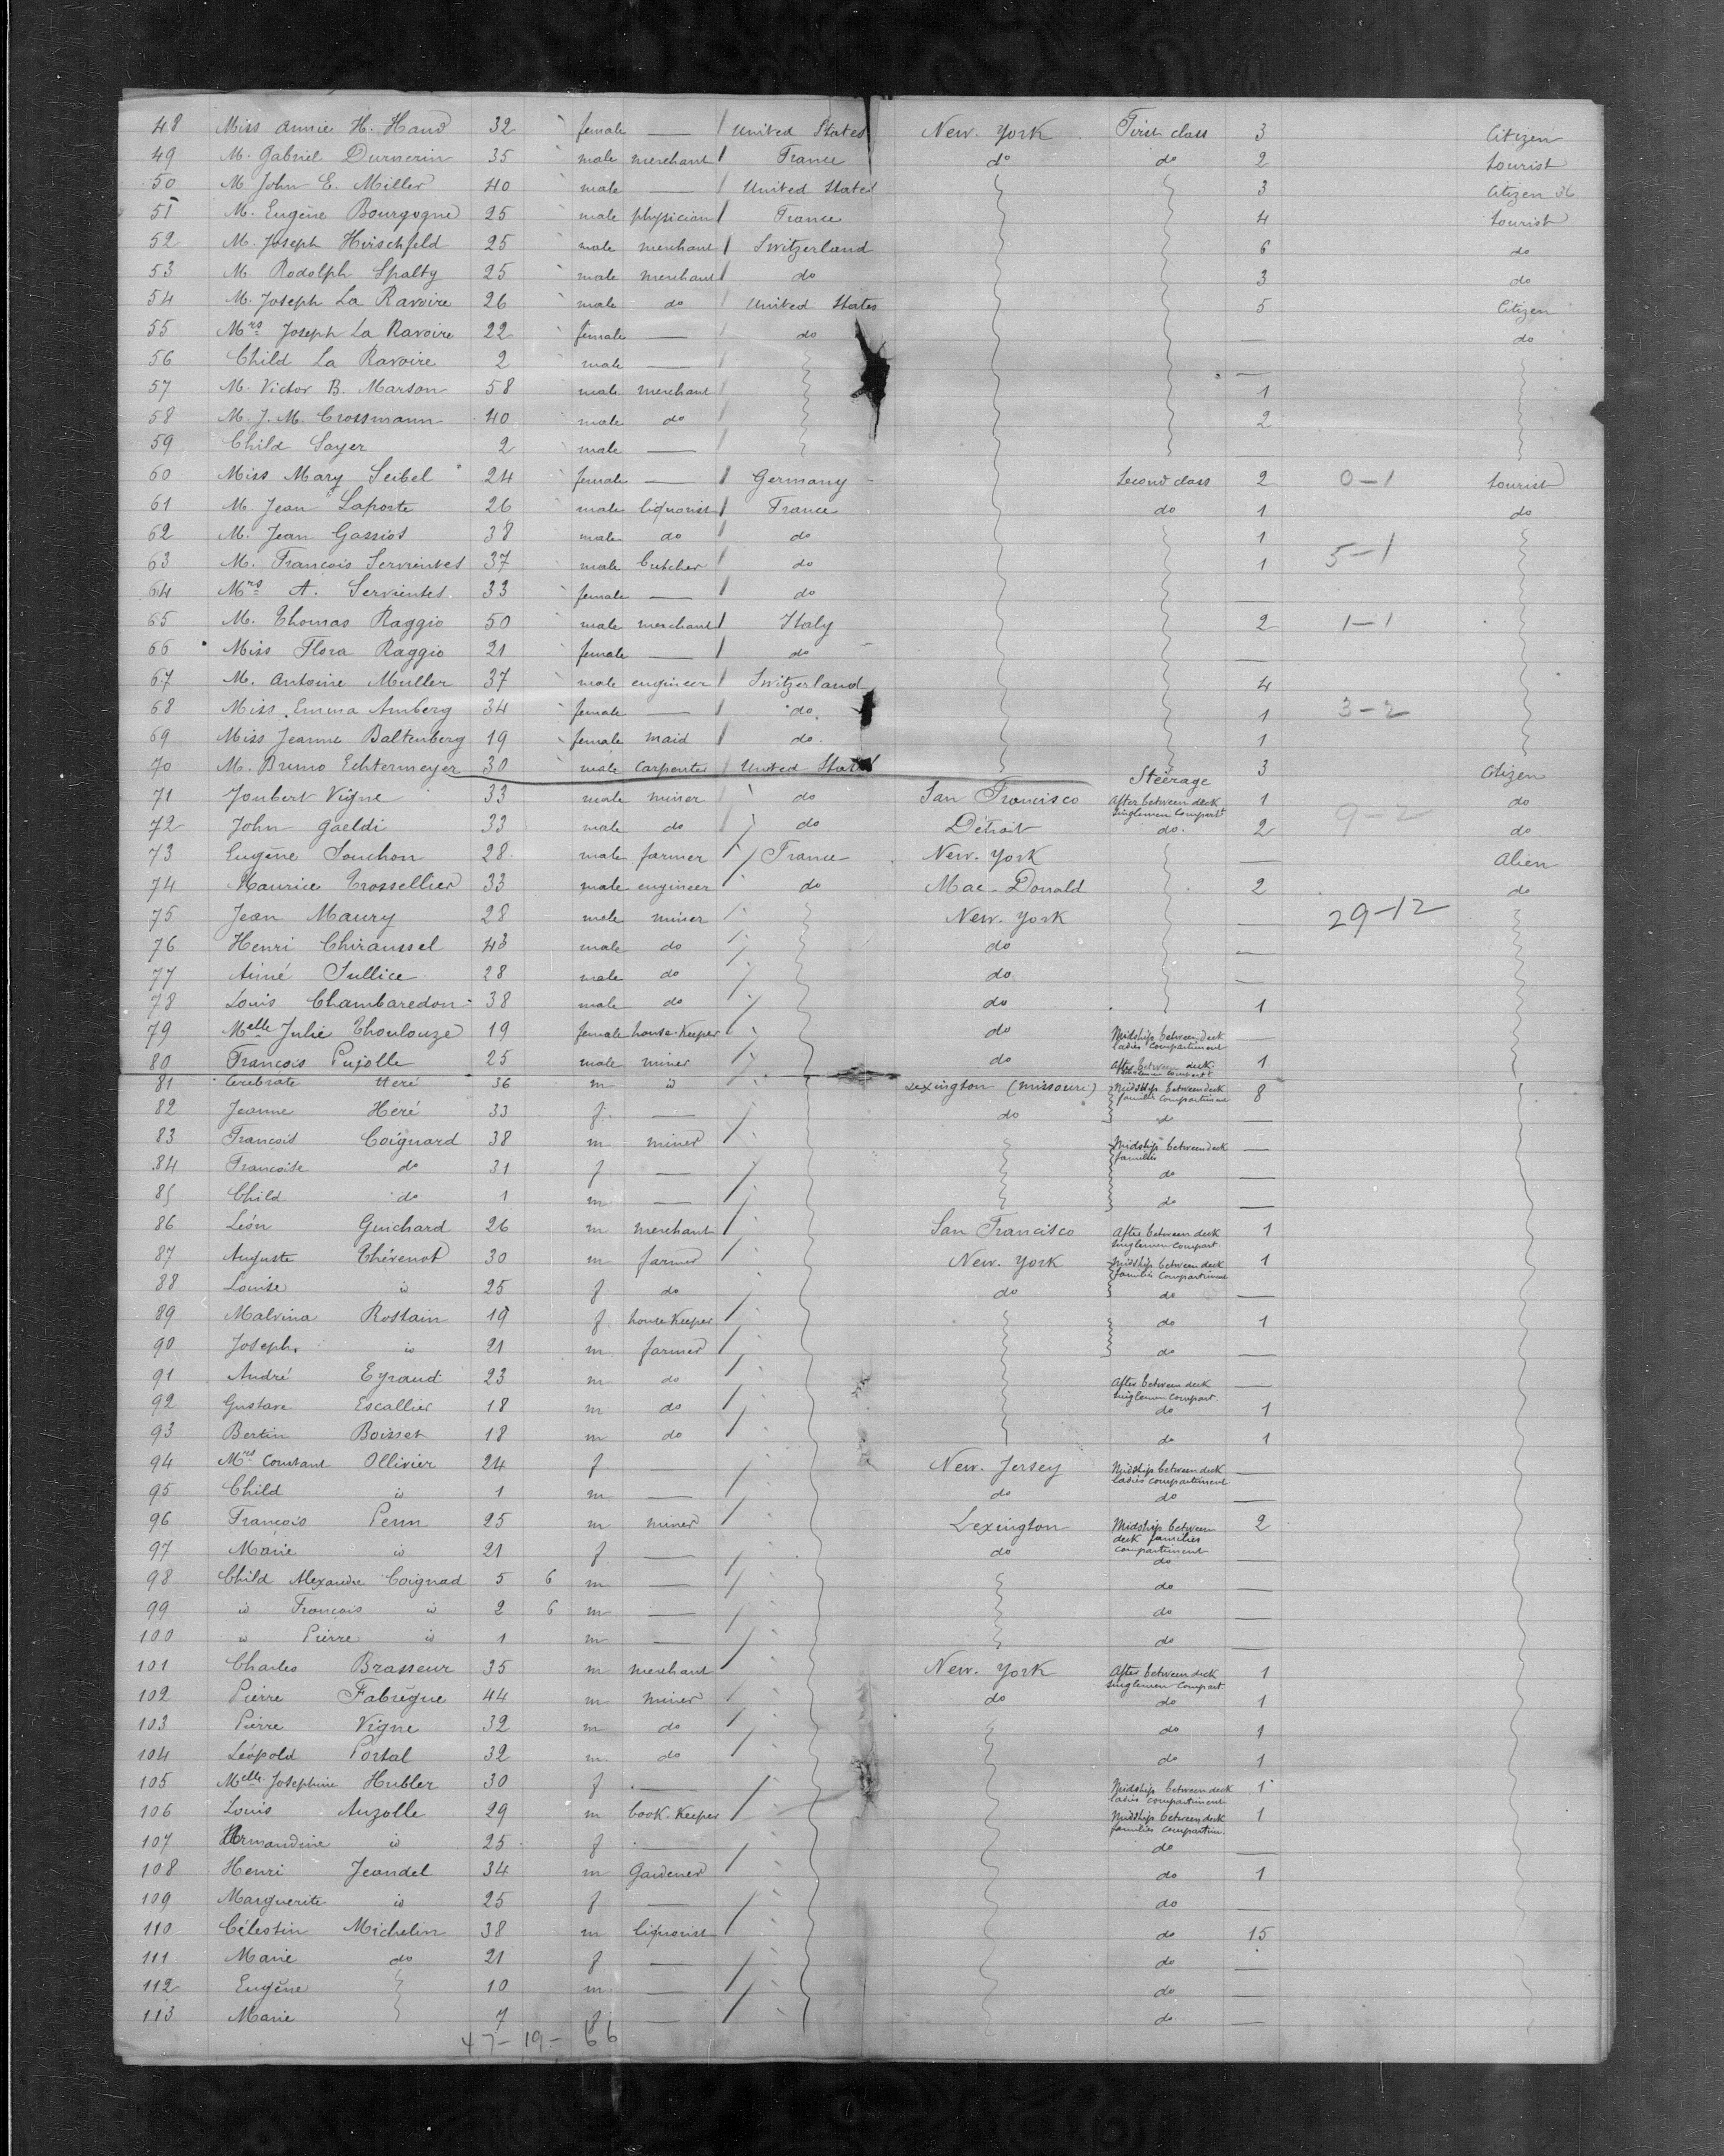 48 Miss Annie H. Hand 32 female — United States New. York First class 3 Citizen
49 M. Gabriel Durnerin 35 male merchant France do do 2 tourist
50 M. John E. Miller 40 male — United States 3 Citizen 36
51 M. Eugène Bourgogne 25 male physician France 4 tourist
52 M. Joseph Hirschfeld 25 male merchant Switzerland 6 do
53 M. Rodolph Spalty 25 male merchant do 3 do
54 M. Joseph La Ravoire 26 male do United States 5 Citizen
55 Mrs Joseph La Ravoire 22 female — do — do
56 Child La Ravoire 2 male — —
57 M. Victor B. Marson 58 male merchant 1
58 M. J. M. Crossmann 40 male do 2
59 Child Sayer 2 male — —
60 Miss Mary Seibel 24 female — Germany Second class 2 0-1 tourist
61 M. Jean Laporte 26 male liquorist France do 1 do
62 M. Jean Gassios 38 male do do 1
63 M. François Servientes 37 male butcher do 1 5-1
64 Mrs A. Servientes 33 female — do —
65 M. Thomas Raggio 50 male merchant Italy 2 1-1
66 Miss Flora Raggio 21 female — do —
67 M. Antoine Muller 37 male engineer Switzerland 4
68 Miss Emma Amberg 34 female — do 1 3-2
69 Miss Jeanne Baltenberg 19 female maid do 1
70 M. Bruno Echtermeyer 30 male carpenter United States 3 Citizen
Steerage
71 Joubert Vigne 33 male miner do San Francisco After between deck singlemen compartt 1 do
72 John Gaeldi 33 male do do Détroit do. 2 9-2 do
73 Eugène Souchon 28 male farmer France New. York — Alien
74 Maurice Trossellier 33 male engineer do Mac-Donald 2 do
75 Jean Maury 28 male miner New. York — 29-12
76 Henri Chiraussel 43 male do do —
77 Aimé Jullice 28 male do do —
78 Louis Chambaredon 38 male do do 1
79 Melle Julie Thoulouze 19 female house-keeper do Midship between deck ladies compartiment —
80 François Pujolle 25 male miner do After between deck singlemen compartt 1
81 Cerebrate Héré 36 m id Lexington (Missouri) Midship between deck families compartiment 8
82 Jeanne Héré 33 f — do do —
83 François Coignard 38 m miner Midship between deck families —
84 Françoise do 31 f — do —
85 Child do 1 m — do —
86 Léon Guichard 26 m merchant San Francisco After between deck singlemen compart. 1
87 Auguste Thévenot 30 m farmer New. York Midship between deck families compartiment 1
88 Louise id 25 f do do do —
89 Malvina Rostain 19 f. house-keeper do 1
90 Joseph id 21 m farmer do —
91 André Eyraud 23 m do After between deck singlemen compart. —
92 Gustave Escallier 18 m do do 1
93 Bertin Boisset 18 m do do 1
94 Mrs Constant Ollivier 24 f — New. Jersey Midship between deck ladies compartiment —
95 Child id 1 m — do do —
96 François Penn 25 m miner Lexington Midship between deck families compartiment 2
97 Marie id 21 f — do do —
98 Child Alexandre Coignad 5 6 m — do —
99 id François id 2 6 m — do —
100 id Pierre id 1 m — do —
101 Charles Brasseur 35 m merchant New. York After between deck singlemen compart. 1
102 Pierre Fabrègue 44 m miner do do 1
103 Pierre Vigne 32 m do do 1
104 Léopold Portal 32 m. do do 1
105 Melle Joséphine Hubler 30 f — Midship between deck ladies compartiment 1
106 Louis Auzolle 29 m book-keeper Midship between deck families compartim. 1
107 Armandine id 25 f — do —
108 Henri Jeandel 34 m Gardener do 1
109 Marguerite id 25 f — do —
110 Célestin Michelin 38 m liquorist do 15
111 Marie do 21 f — do —
112 Eugène 10 m — do —
113 Marie 7 f — do. —
47-19-66